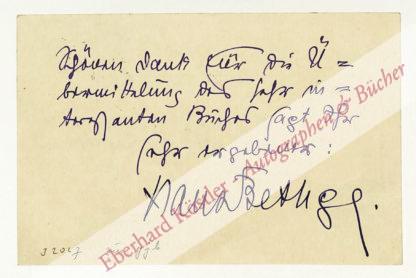 Schönen Dank für die Ü=
bermittelung des sehr in=
teressanten Buches sagt Ihr
sehr ergebener:
Hans Bethge.
Eberhard Köstler Autographen & Bücher